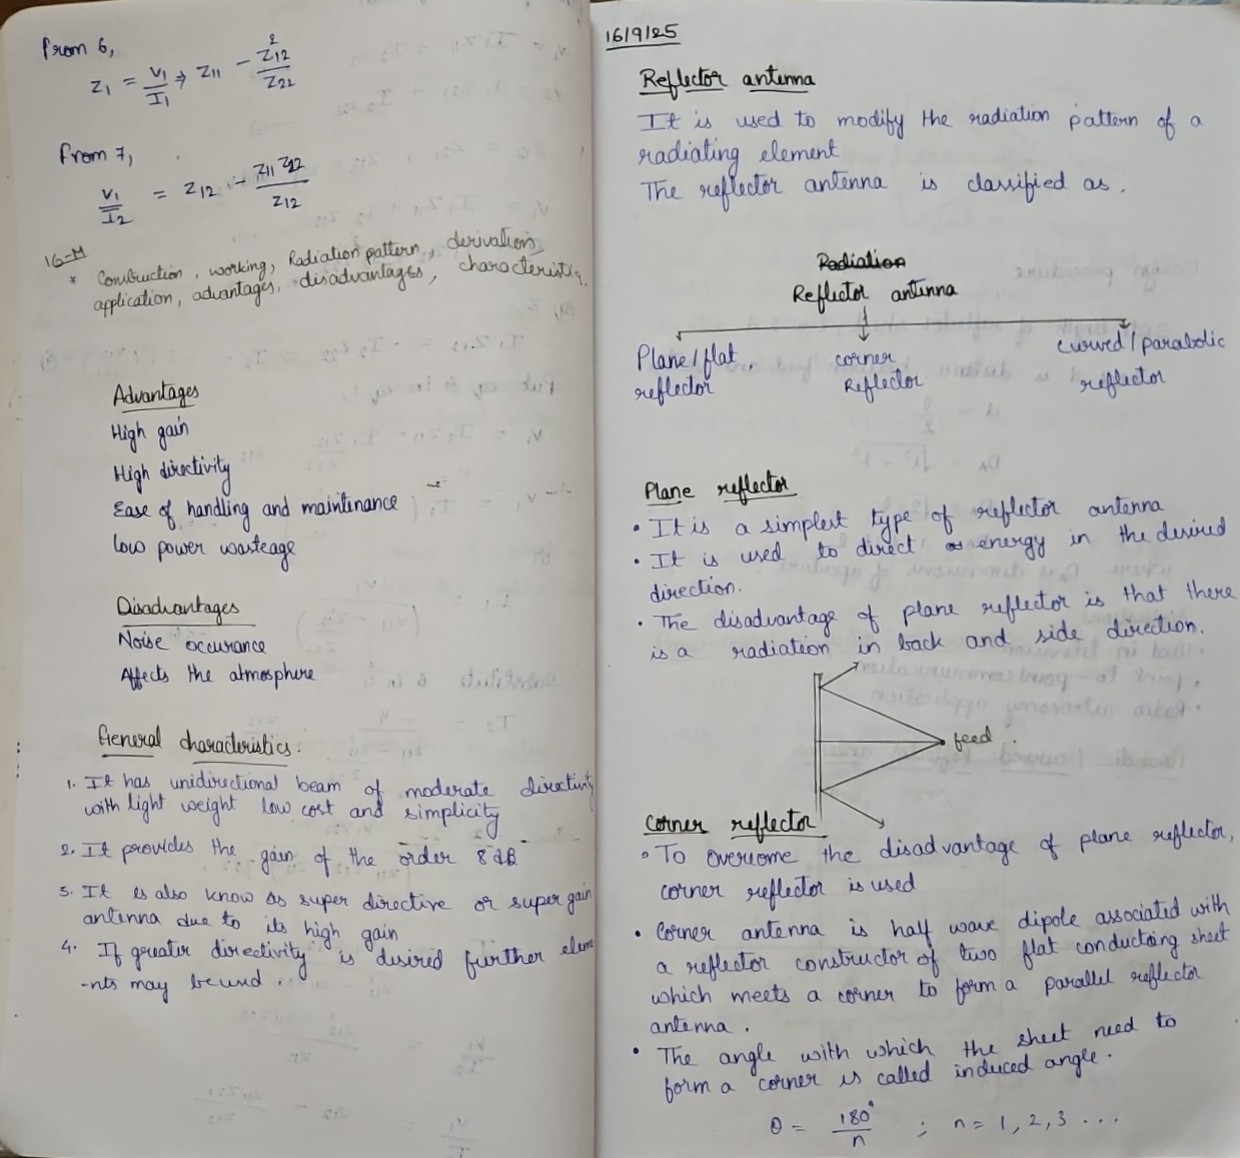 From 6,
Z1 = V1/I1 ⇒ Z11 - Z12²/Z22
From 7,
V1/I2 = Z12 - Z11 Z22/Z12
16-M
* Constuction, working, Radiation pattern, derivation,
application, advantages, disadvantages, characteristic,
Advantages
High gain
High directivity
Ease of handling and maintinance
Low power wasteage
Disadvantages
Noise occurance
Affects the atmosphere
General characteristics:
1. It has unidirectional beam of moderate directivity
with light weight low cost and simplicity
2. It provides the gain of the order 8 dB
3. It is also know as super directive or super gain
antenna due to its high gain
4. If greater directivity is disired further elem
-nts may be used.
16/9/25
Reflector antenna
It is used to modify the radiation pattern of a
radiating element
The reflector antenna is classified as.
Radiation
Reflector antenna
Plane/flat corner curved/parabolic
reflector Reflector reflector
Plane reflector
• It is a simplest type of reflector antenna
• It is used to direct energy in the desired
direction.
• The disadvantage of plane reflector is that there
is a radiation in back and side direction.
feed
Corner reflector
• To overcome the disadvantage of plane reflector,
corner reflector is used
• Corner antenna is half wave dipole associated with
a reflector constructor of two flat conducting sheet
which meets a corner to form a parallel reflector
antenna.
• The angle with which the sheet need to
form a corner is called induced angle.
θ = 180°/n ; n = 1, 2, 3 ...